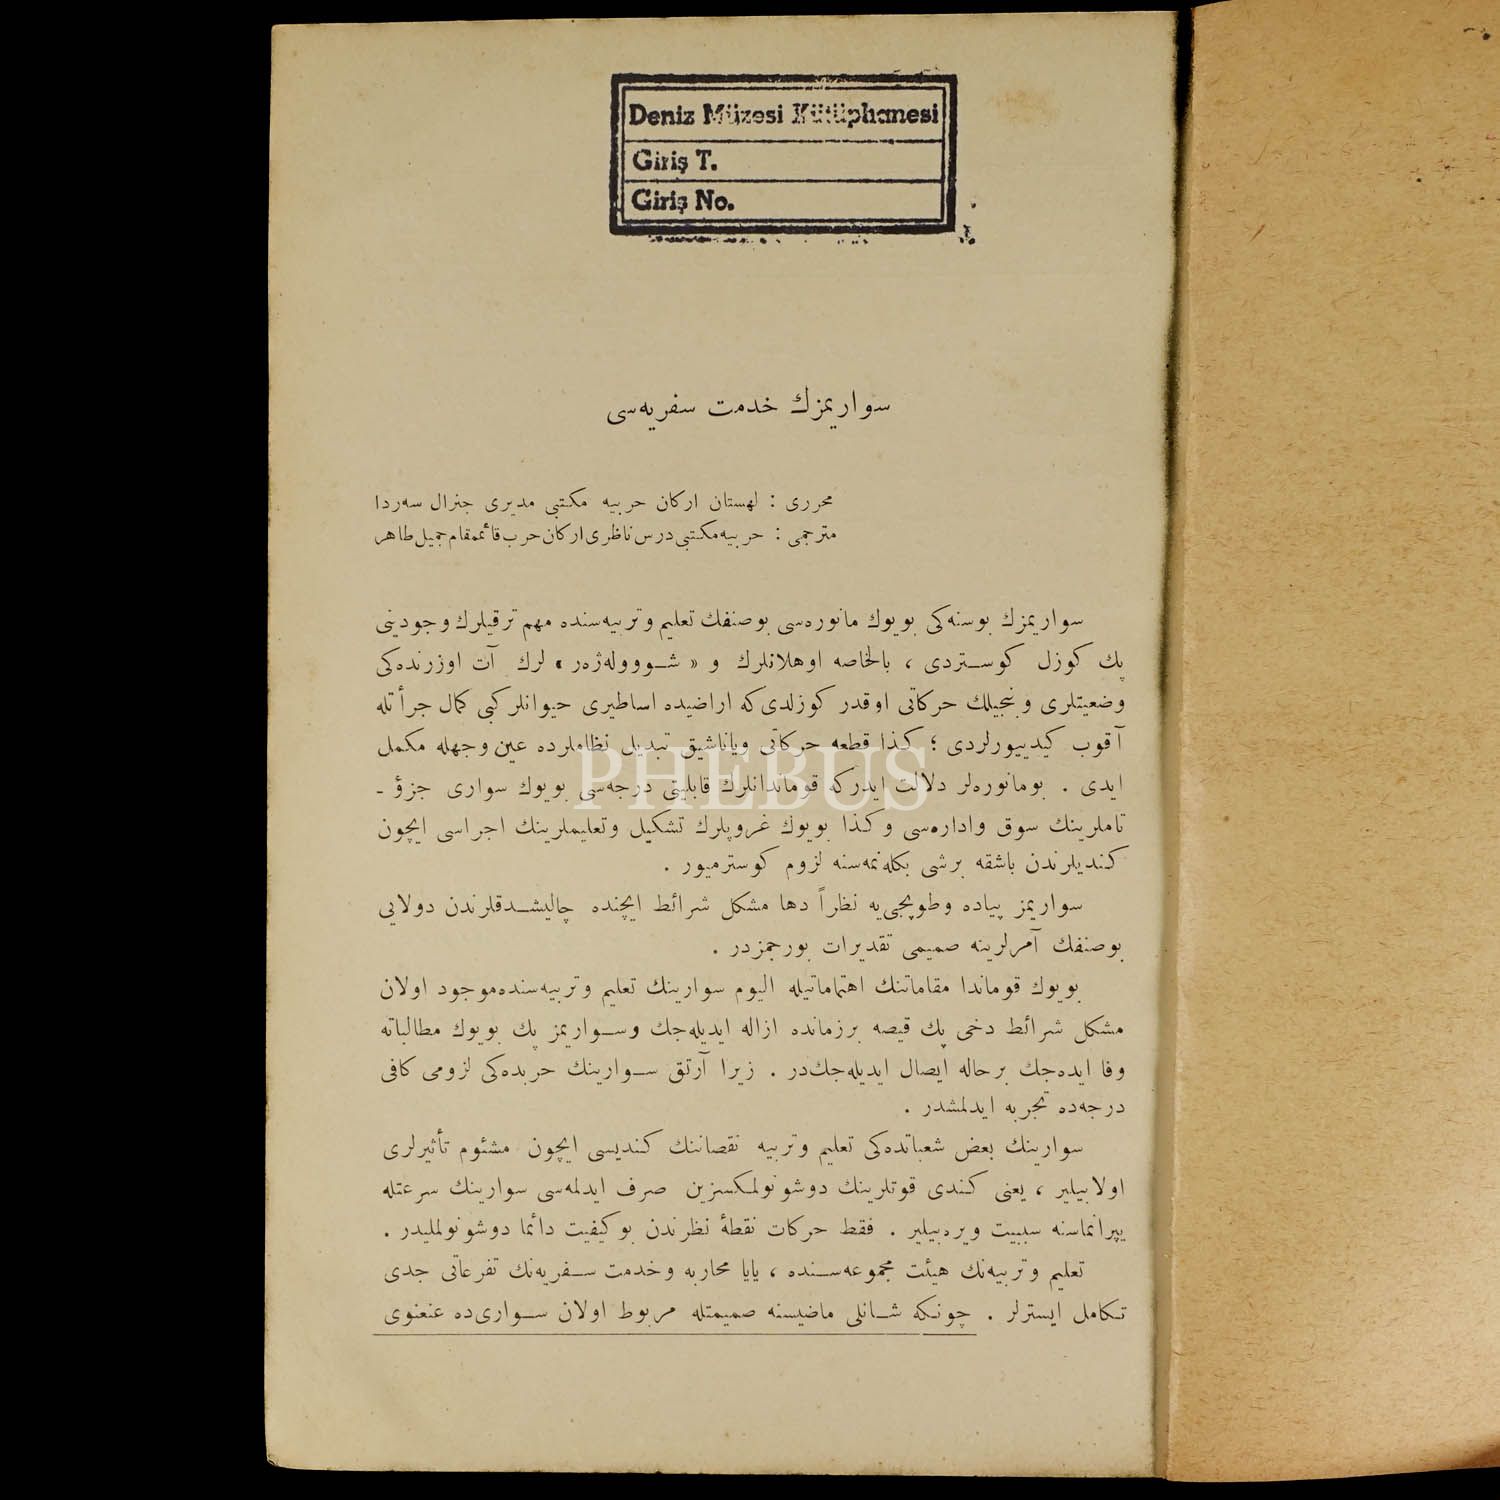 Deniz Müzesi Kütüphanesi
Giriş T.
Giriş No.
سواریمزك خدمت سفریه‌سی
محرری : لهستان اركان حربیه مكتبی مدیری جنرال سه‌ردا
مترجمی : حربیه مكتبی درس ناظری اركان حرب قائممقام جمیل طاهر
سواریمزك بوسنه‌كی بویوك مانوره‌سی بوصنفك تعلیم وتربیه‌سنده مهم ترقیلرك وجودینی
پك كوزل كوستردی ، بالخاصه اوهلانلرك و « شوووله‌ژه‌ر » لرك آت اوزرنده‌كی
وضعیتلری و بنجیلك حركاتی اوقدر كوزلدی‌كه اراضیده اساطیری حیوانلر كبی كمال جرأتله
آقوب كیدییورلردی ؛ كذا قطعه حركاتی ویاناشیق تبدیل نظاملرده عین وجهله مكمل
ایدی . بومانوره‌لر دلالت ایدركه قوماندانلرك قابلیتی درجه‌سی بویوك سواری جزؤ -
تاملرینك سوق واداره‌سی وكذا بویوك غروپلرك تشكیل وتعلیملرینك اجراسی ایچون
كندیلرندن باشقه برشی بكله‌نمه‌سنه لزوم كوسترمیور .
سواریمز پیاده وطوپجی‌یه نظراً دها مشكل شرائط ایچنده چالیشدقلرندن دولایی
بوصنفك آمرلرینه صمیمی تقدیرات بورجمزدر .
بویوك قوماندا مقاماتنك اهتماماتیله الیوم سوارینك تعلیم وتربیه‌سنده موجود اولان
مشكل شرائط دخی پك قیصه برزمانده ازاله ایدیله‌جك وسواریمز پك بویوك مطالباته
وفا ایده‌جك برحاله ایصال ایدیله‌جك‌در . زیرا آرتق سوارینك حربده‌كی لزومی كافی
درجه‌ده تجربه ایدلمشدر .
سوارینك بعض شعباتده‌كی تعلیم وتربیه نقصاننك كندیسی ایچون مشئوم تأثیرلری
اولابیلیر ، یعنی كندی قوتلرینك دوشونولمكسزین صرف ایدلمه‌سی سوارینك سرعتله
یپرانماسنه سببیت ویره‌بیلیر . فقط حركات نقطهٔ نظرندن بو كیفیت دائما دوشونولملیدر .
تعلیم وتربیه‌نك هیئت مجموعه‌سنده ، یایا محاربه وخدمت سفریه‌نك تفرعاتی جدی
تكامل ایسترلر . چونكه شانلی ماضیسنه صمیمتله مربوط اولان سواری‌ده عنعنوی
PHEBUS